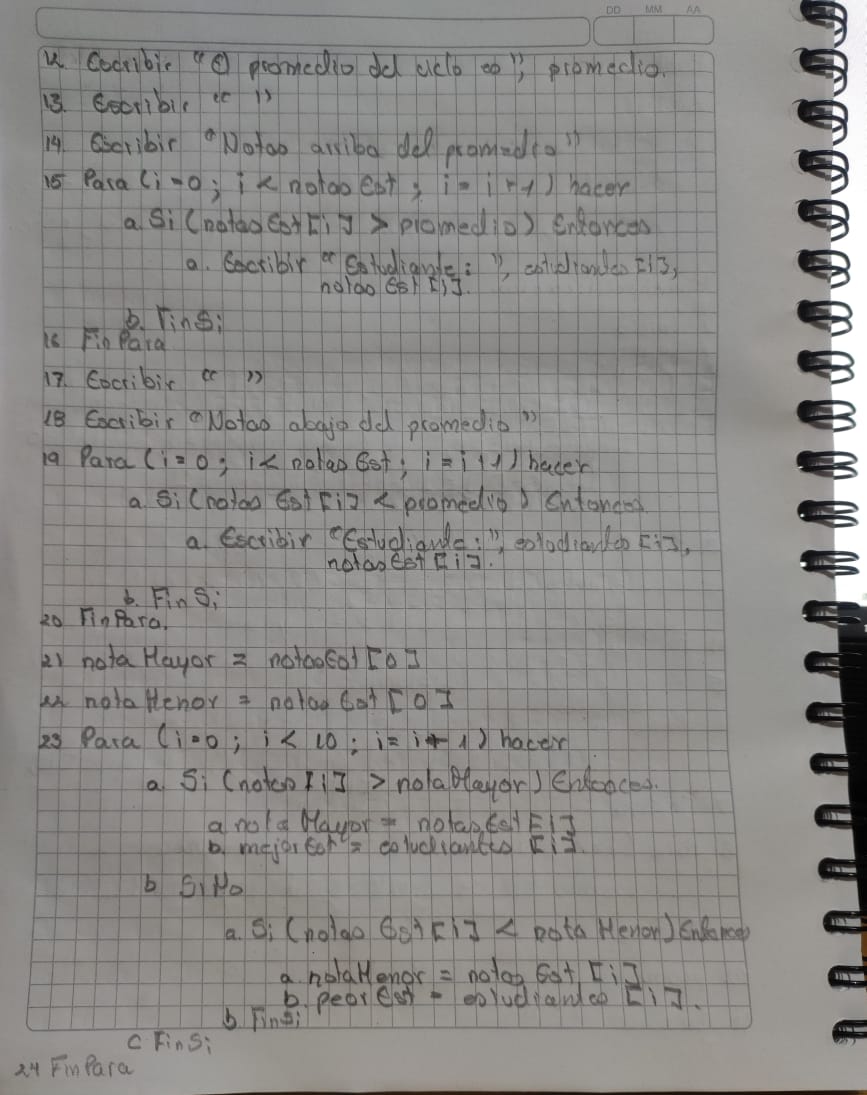 DD MM AA
12. Escribir "El promedio del ciclo es", promedio.
13. Escribir " "
14. Escribir "Notas arriba del promedio"
15 Para (i=0; i < notasEst; i = i+1) hacer
a. Si (notasEst[i] > promedio) Entonces
a. Escribir "Estudiante: ", estudiantes [i],
notasEst [i].
b. FinSi
16 FinPara
17. Escribir " "
18 Escribir "Notas abajo del promedio"
19 Para (i=0; i< notasEst; i=i+1) hacer
a. Si (notasEst[i] < promedio) Entonces
a. Escribir "Estudiante:", estudiantes [i],
notasEst [i].
b. FinSi
20 FinPara.
21 notaMayor = notasEst [0]
22 notaMenor = notasEst [0]
23 Para (i=0; i< 10; i= i+1) hacer
a. Si (notas [i] > notaMayor) Entonces.
a notaMayor = notasEst [i]
b. mejorEst = estudiantes [i].
b SiNo
a. Si (notasEst[i] < notaMenor) Entonces
a. notaMenor = notasEst [i]
b. peorEst = estudiantes [i].
b FinSi
c FinSi
24 FinPara